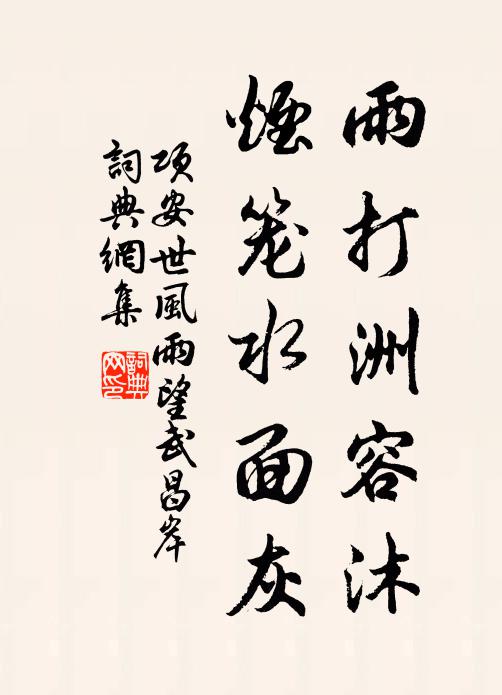 雨打洲容沐
煙笼水面灰
项安世風雨望武昌岸
詞典網集
詞典网印